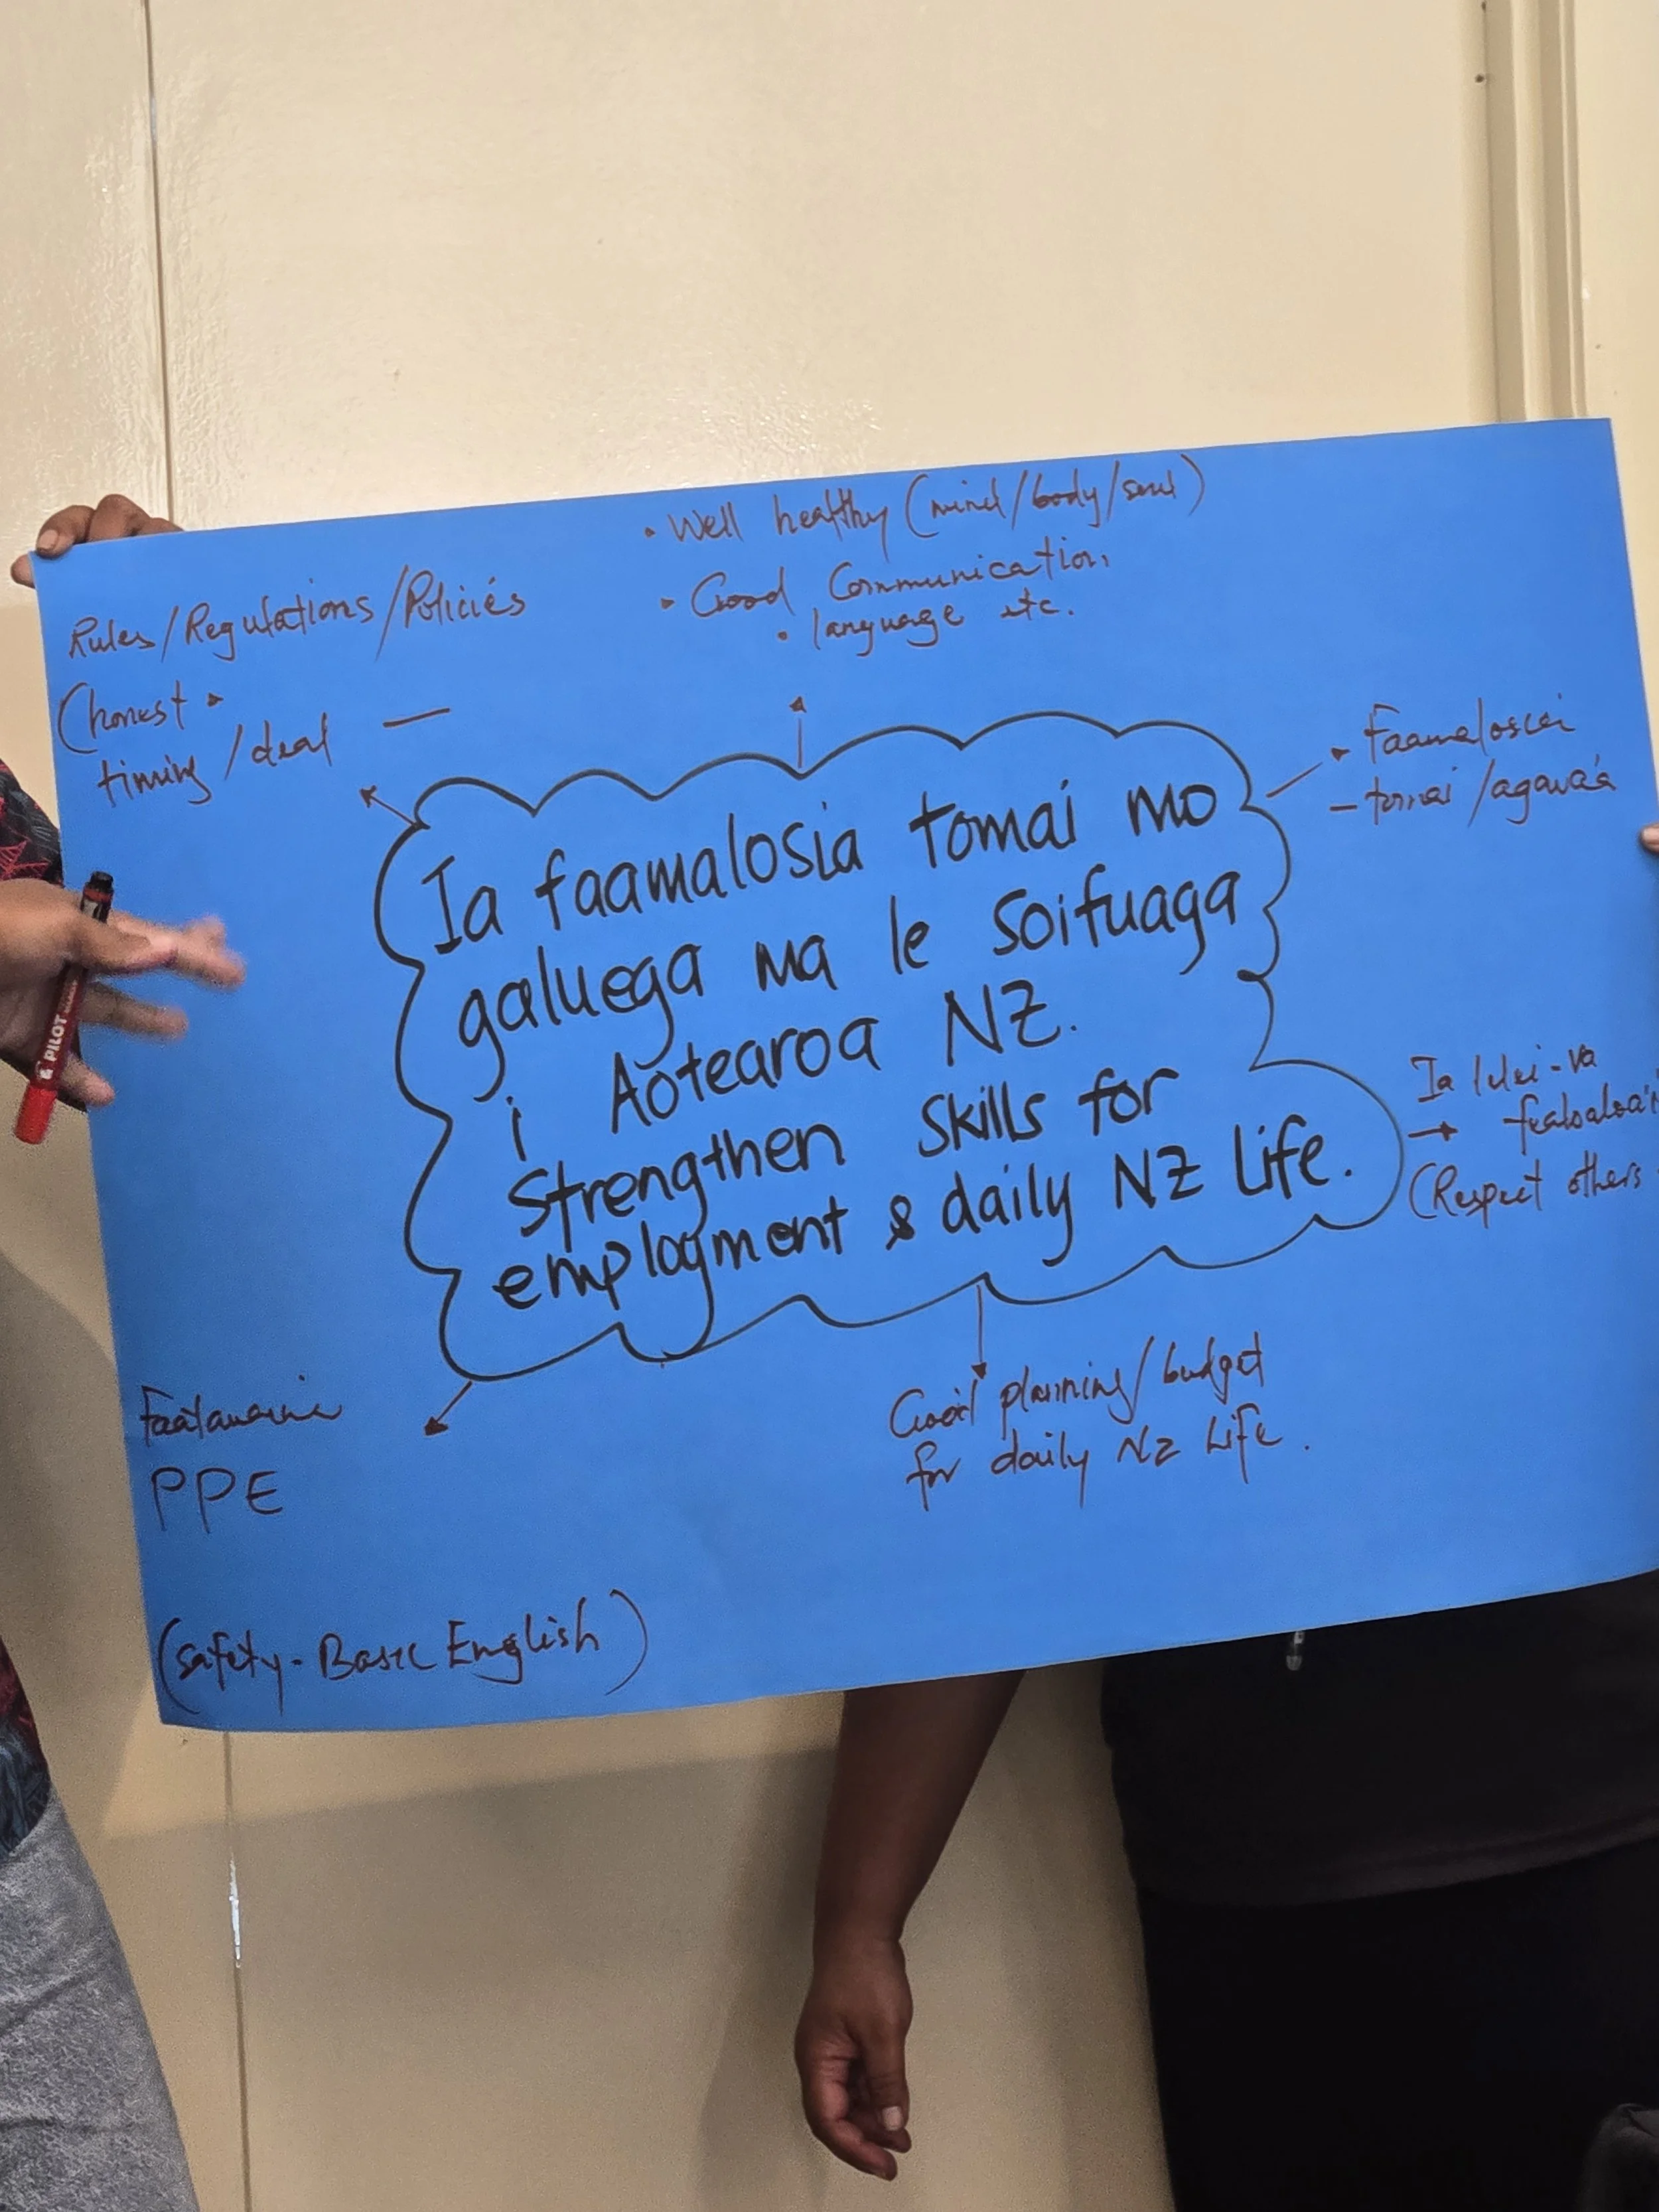 • Well healthy (mind/body/soul)
• Good Communication
• language etc.
Rules/Regulations/Policies
(honest •
timing/deal —
• Faamalosia
– tomai/agavaá
Ia faamalosia tomai mo
galuega ma le soifuaga
i Aotearoa NZ.
Strengthen skills for
employment & daily NZ Life.
Ia lelei-va
(Respect others
Good planning/budget
for daily NZ Life.
PPE
(safety-Basic English)
PILOT